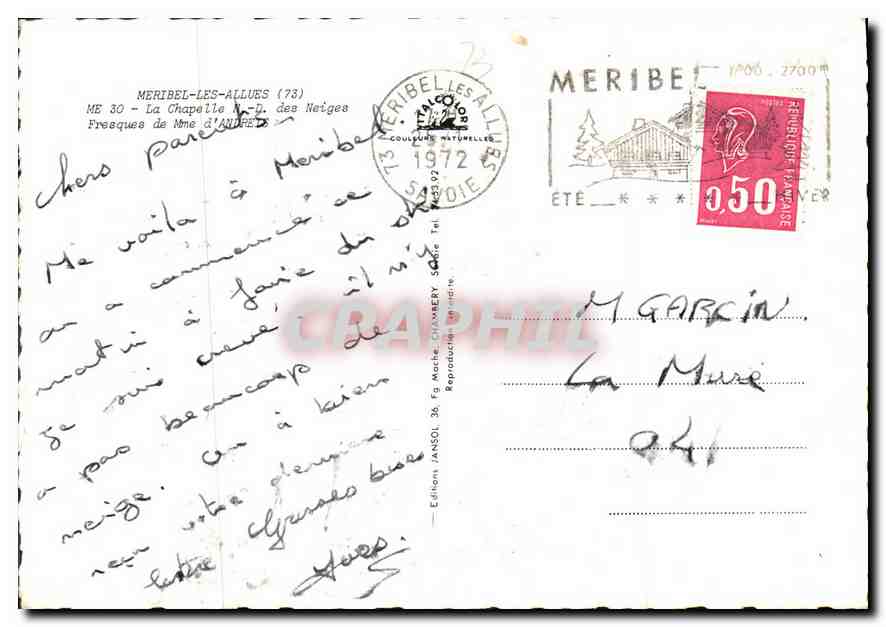 MERIBEL-LES-ALLUES (73)
ME 30 - La Chapelle N.-D. des Neiges
Fresques de Mme d'ANDRETE
chers parents
Me voila à Meribel
on a commencé ce
matin à faire du ski
je suis crevé, il n'y
a pas beaucoup de
neige. On a bien
reçu votre dernière
lettre Grosses bises
Yves.
73 MERIBEL LES ALLUES
VITALCOLOR
COULEURS NATURELLES
1972
SAVOIE
Editions JANSOL, 36, Fg Mache, CHAMBERY Savoie Tel.
Reproduction interdite.
MERIBEL
1700 - 2700m
ÉTÉ
HIVER
POSTES
REPUBLIQUE FRANÇAISE
0,50
M GARCIN.
La Mure
04
CRAPHIL
73